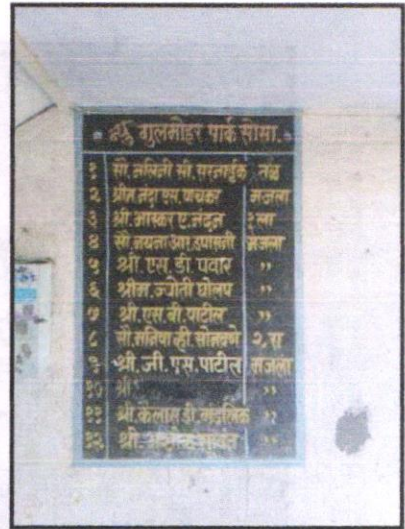 गुलमोहर पार्क सोसा.
१ सौ. नलिनी सी. सरनाईक तळ
२ श्रीम. नंदा एस. पायकर मजला
३ श्री. भास्कर ए. नंदन १ ला
४ सौ. नयना आर. उपासनी मजला
५ श्री. एस. डी. पवार ,,
६ श्रीम. ज्योती घोलप ,,
७ श्री. एस. बी. पाटील ,,
८ सौ. मनिषा व्ही. सोनवणे २ रा
९ श्री. जी. एस. पाटील मजला
१० श्री ,,
११ श्री. कैलास डी. ,,
१२ श्री. अशोक ,,